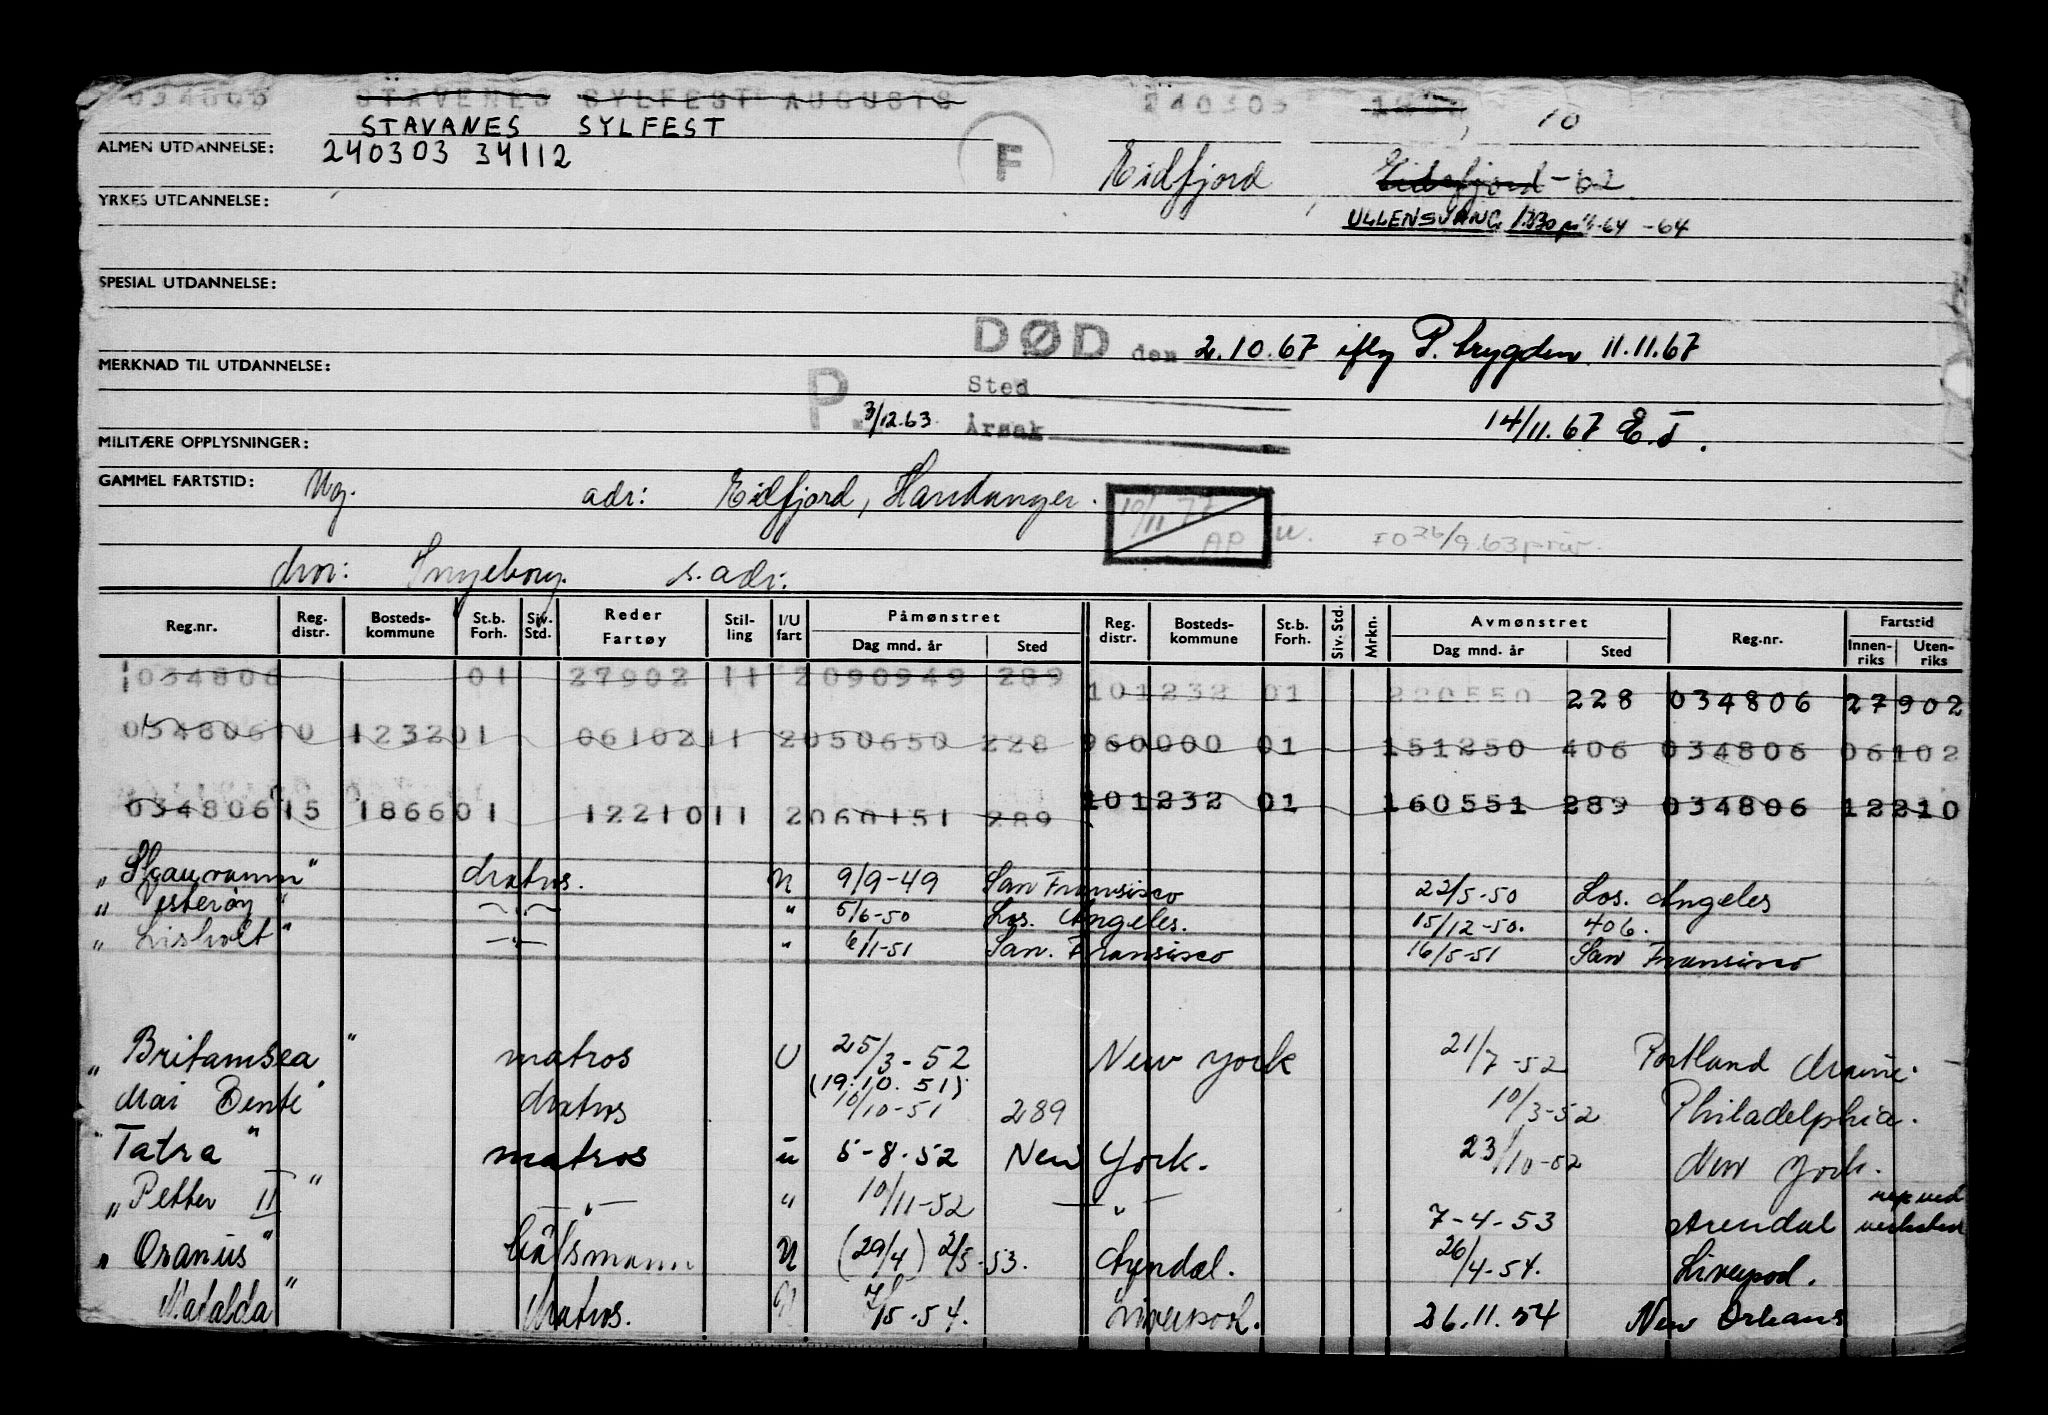 034806 STAVENES SYLFEST AUGUSTS 240303
STAVANES SYLFEST 10
ALMEN UTDANNELSE: 240303 34112 F Eidfjord Eidsfjord -62
YRKES UTDANNELSE:
ULLENSVANG -64 -64
SPESIAL UTDANNELSE:
DØD den 2.10.67 iflg P. trygden 11.11.67
MERKNAD TIL UTDANNELSE:
P. 3/12.63. Sted
Årsak 14/11.67 E.T.
MILITÆRE OPPLYSNINGER:
GAMMEL FARTSTID: Ug. adr: Eidfjord, Hardanger.
10/11-77 AP u. FO 26/9.63 priv.
mor: Ingeborg. s. adr.
Reg.nr. Reg. distr. Bosteds-kommune St.b. Forh. Siv. Std. Reder Fartøy Stil-ling I/U fart Påmønstret Dag mnd. år Sted Reg. distr. Bosteds-kommune St.b. Forh. Siv. Std. Mrkn. Avmønstret Dag mnd. år Sted Reg.nr. Fartstid Innen-riks Uten-riks
034806 01 27902 11 2 090949 289 101232 01 220550 228 034806 27902
034806 10 1232 01 06102 11 2 050650 228 960000 01 151250 406 034806 06102
034806 15 1866 01 12210 11 2 060151 289 101232 01 160551 289 034806 12210
"Skauvann" Matros. U 9/9-49 San Fransisco 22/5-50 Los. Angeles
"Vesterøy" " 5/6-50 Los. Angeles. 15/12-50. 406.
"Lisholt" " 6/1-51 San. Fransisco 16/5-51 San Fransisco
"Britamsea" matros U 25/3-52 New York 21/7-52 Portland Maine.
(19.10.51)
Mai Bente" Matros 10/10-51 289 10/3-52 Philadelphia.
"Tatra" matros u 5-8-52 New York. 23/10-52 New York.
"Petter II" -"- " 10/11-52 -"- 7-4-53 Arendal rep ved verksted
"Oranus" Båtsmann U (29/4) 2/5-53. Arendal. 26/4-54. Liverpool.
Matalda" Matros. U 7/5-54. Liverpool. 26.11.54 New Orleans